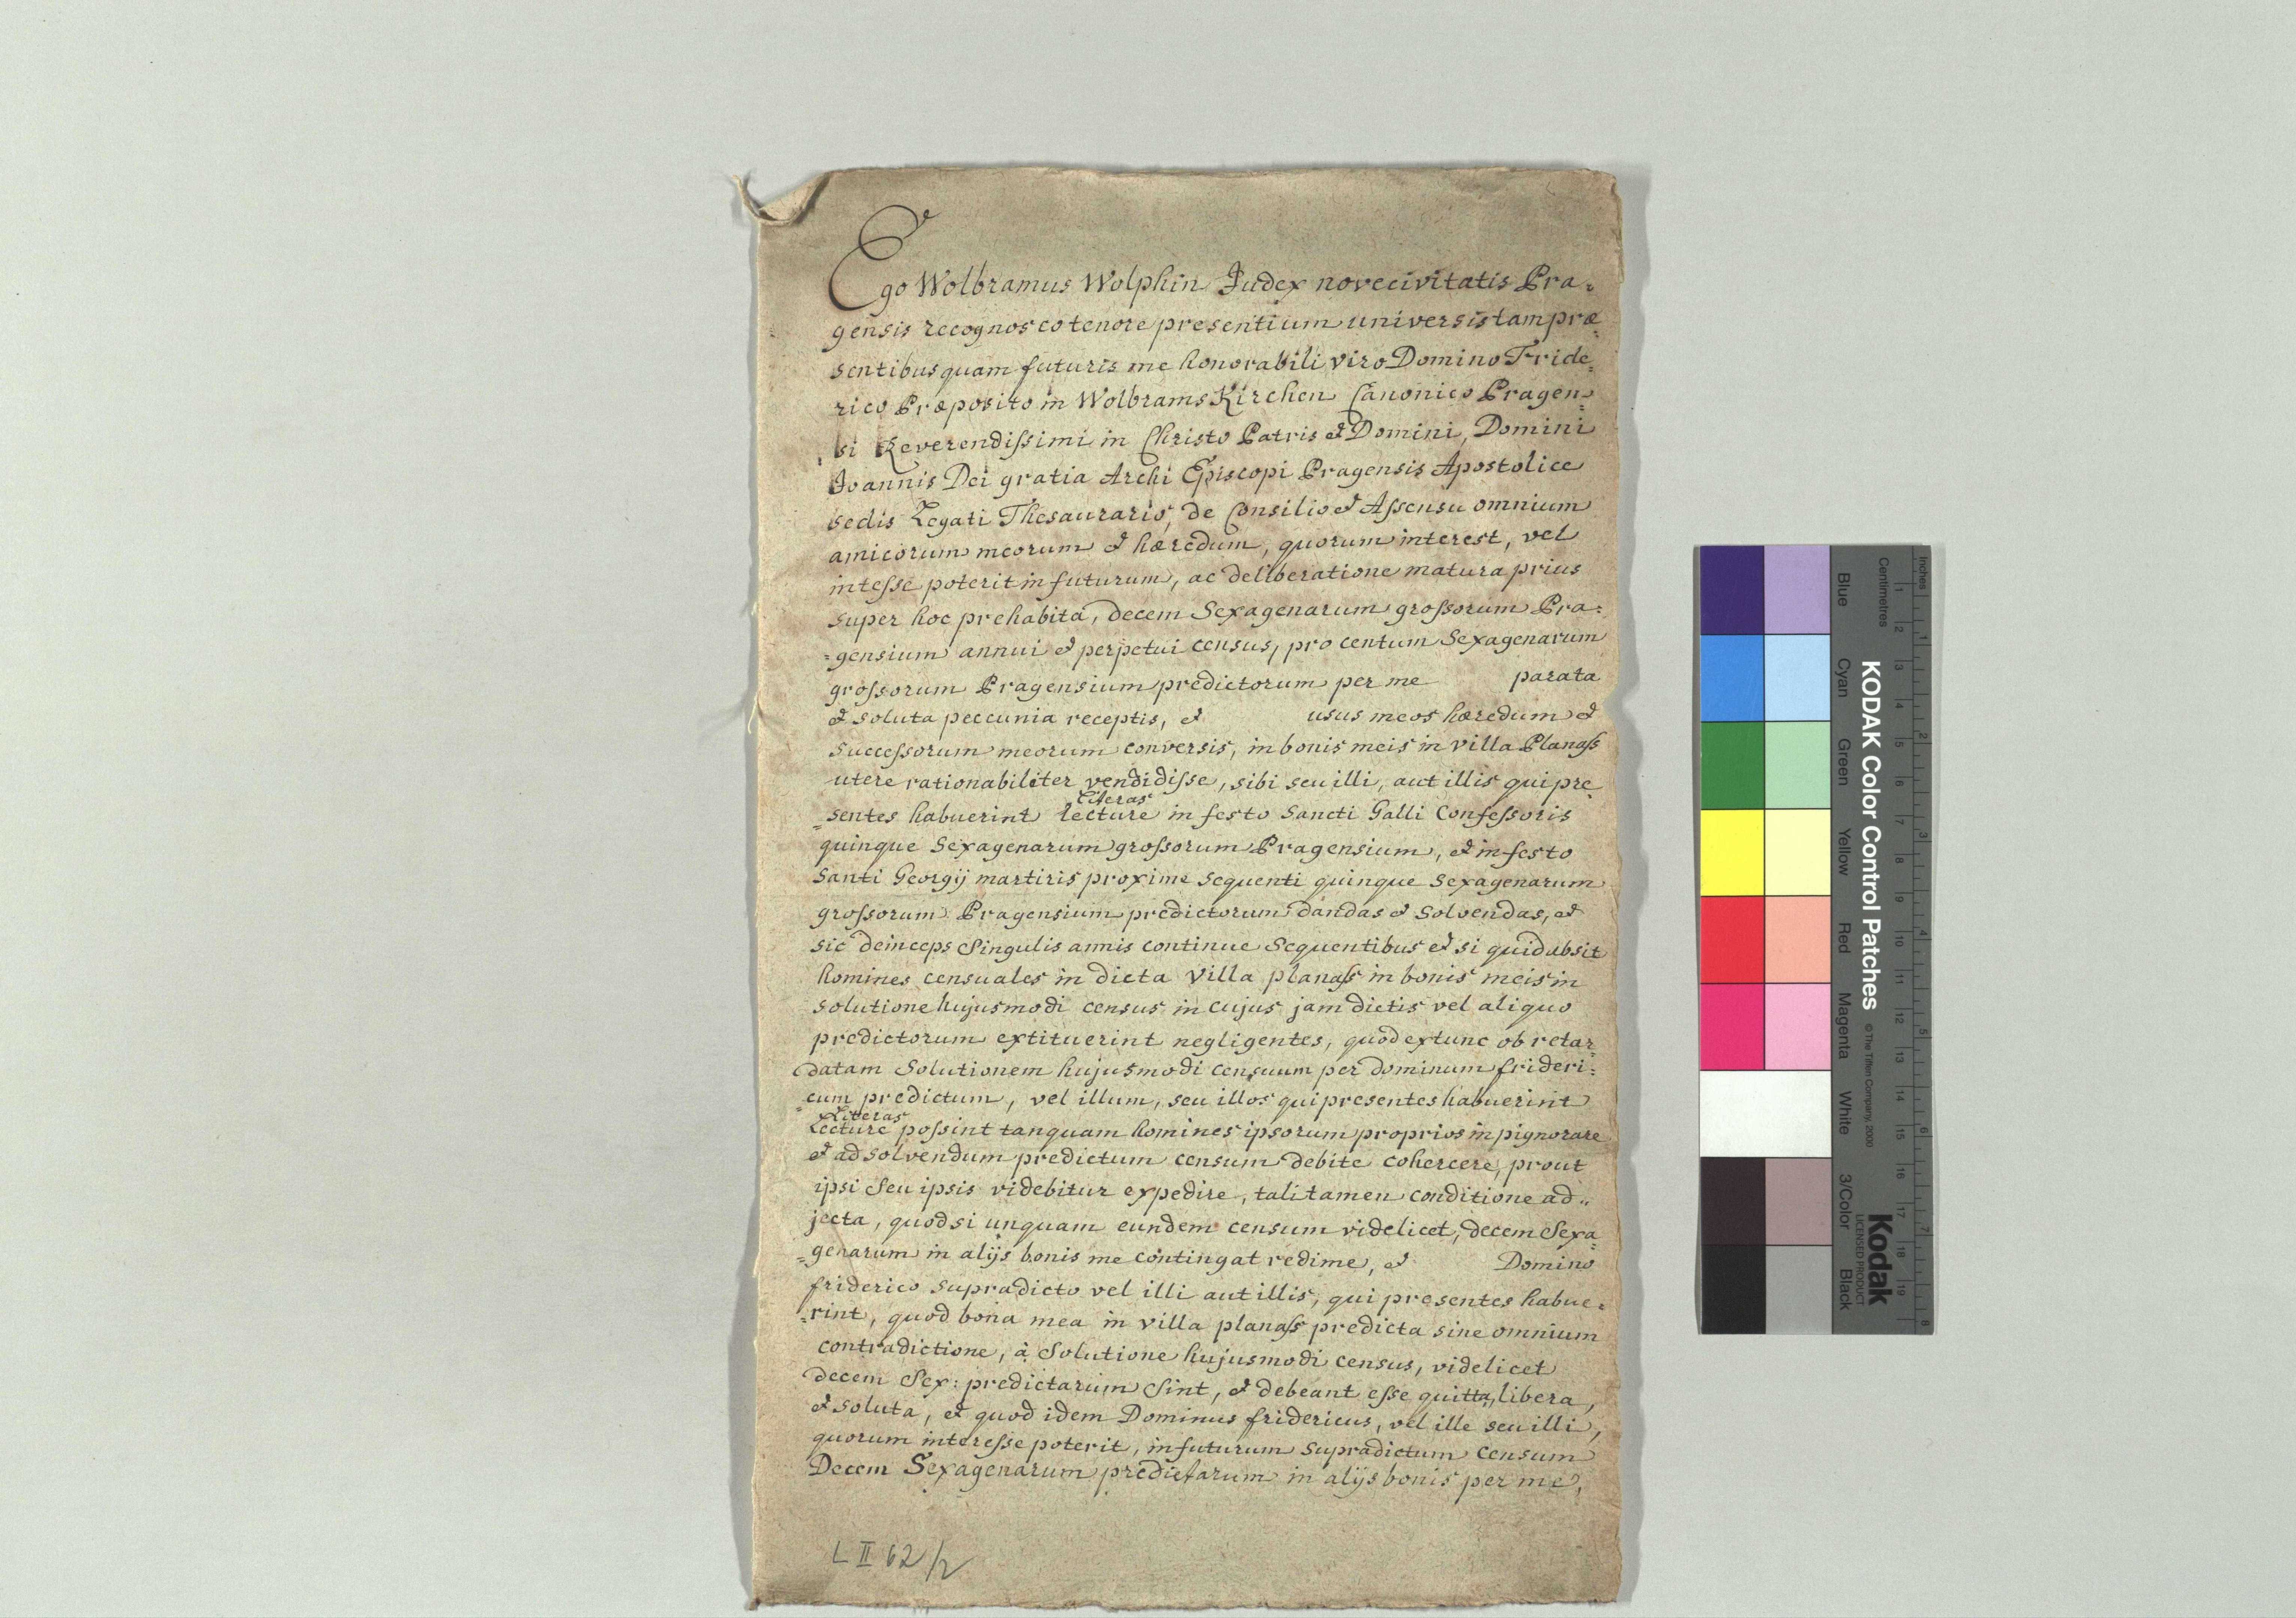 Ego Wolbramus Wolphin Judex nove civitatis Pra=
gensis recognosco tenore presentium universis tam præ=
sentibus quam futuris me honorabili viro Domino Fride=
rico Præposito in Wolbrams Kirchen Canonico Pragen=
si Reverendissimi in Christo Patris et Domini, Domini
Joannis Dei gratia Archi Episcopi Pragensis Apostolice
sedis Legati Thesaurario, de Consilio et Assensu omnium
amicorum meorum et hæredum, quorum interest, vel
intesse poterit in futurum, ac deliberatione matura prius
super hoc prehabita, decem Sexagenarum grossorum Pra=
=gensium annui et perpetui census, pro centum Sexagenarum
grossorum Pragensium predictorum per me parata
et soluta peccunia receptis, et usus meos hæredum et
successorum meorum conversis, in bonis meis in villa Planass
utere rationabiliter vendidisse, sibi seu illi, aut illis qui pre=
literas
=sentes habuerint lecture in festo Sancti Galli Confessoris
quinque Sexagenarum grossorum Pragensium, et in festo
Santi Georgij martiris proxime sequenti quinque Sexagenarum
grossorum Pragensium predictorum dandas et solvendas, et
sic deinceps Singulis annis continue Sequentibus et si quid absit
homines censuales in dicta villa planass in bonis meis in
solutione hujusmodi census in cujus jam dictis vel aliquo
predictorum extituerint negligentes, quod extunc ob retar=
datam Solutionem hujusmodi censuum per dominum frideri=
=cum predictum, vel illum, seu illos qui presentes habuerint
Literas
Lecture possint tanquam homines ipsorum proprios inpignorare
et ad solvendum predictum censum debite cohercere, prout
ipsi Seu ipsis videbitur expedire, tali tamen conditione ad=
jecta, quod si unquam eundem censum videlicet, decem Sexa=
=genarum in alijs bonis me contingat redime, et Domino
friderico supradicto vel illi aut illis, qui presentes habue=
=rint, quod bona mea in villa planass predicta sine omnium
contradictione, à Solutione hujusmodi census, videlicet
decem Sex: predictarum Sint, et debeant esse quitta, libera,
et soluta, et quod idem Dominus fridericus, vel ille seu illi,
quorum interesse poterit, in futurum supradictum censum
Decem Sexagenarum predictarum in alijs bonis per me,
L II 62/2
Inches
Centimetres
1 2 3 4 5 6 7 8 9 10 11 12 13 14 15 16 17 18 19
1 2 3 4 5 6 7 8
KODAK Color Control Patches
© The Tiffen Company, 2000
Kodak
LICENSED PRODUCT
Blue Cyan Green Yellow Red Magenta White 3/Color Black